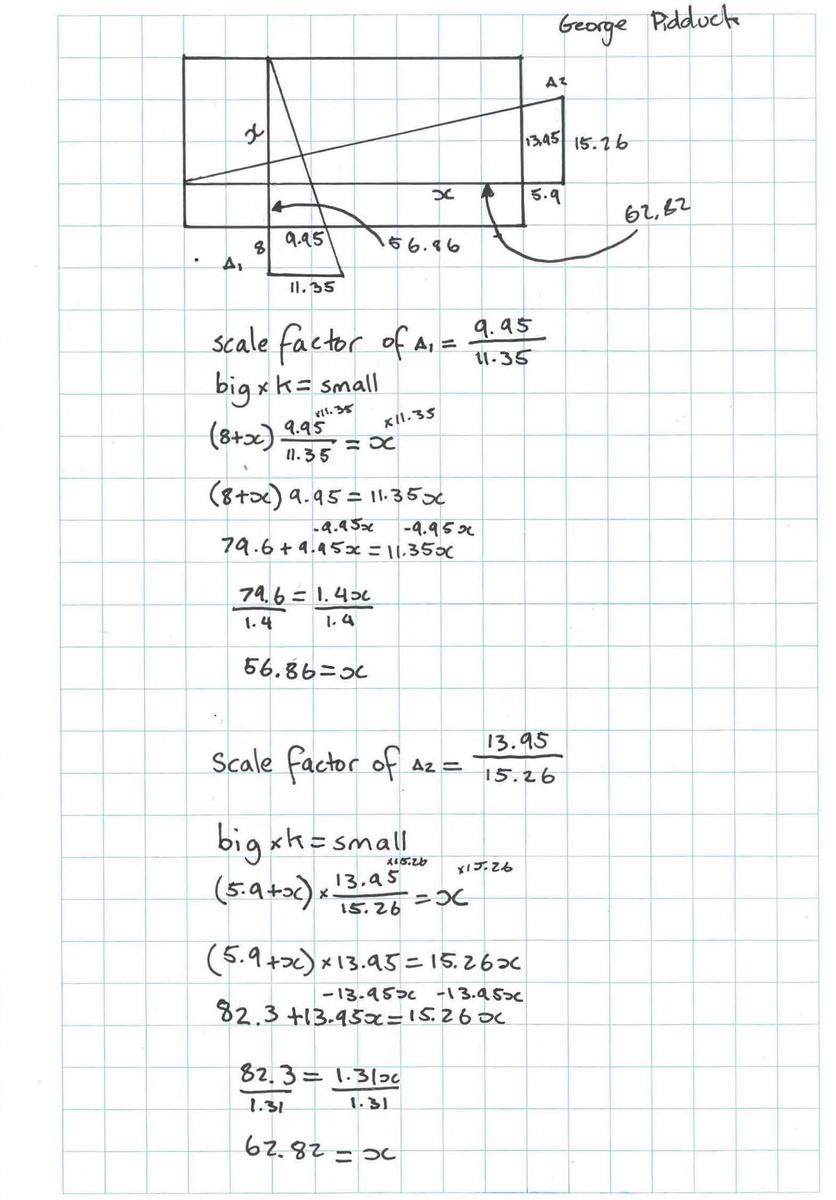 George Pidduck
A2
x
13.95 15.26
x
5.9
62.82
8 9.95
56.86
A1
11.35
scale factor of Δ1 = 9.95/11.35
big × k = small
×11.35 ×11.35
(8+x) 9.95/11.35 = x
(8+x) 9.95 = 11.35x
-9.95x -9.95x
79.6 + 9.95x = 11.35x
79.6/1.4 = 1.4x/1.4
56.86 = x
Scale factor of Δ2 = 13.95/15.26
big × k = small
×15.26 ×15.26
(5.9+x) × 13.95/15.26 = x
(5.9+x) × 13.95 = 15.26x
-13.95x -13.95x
82.3 + 13.95x = 15.26x
82.3/1.31 = 1.31x/1.31
62.82 = x